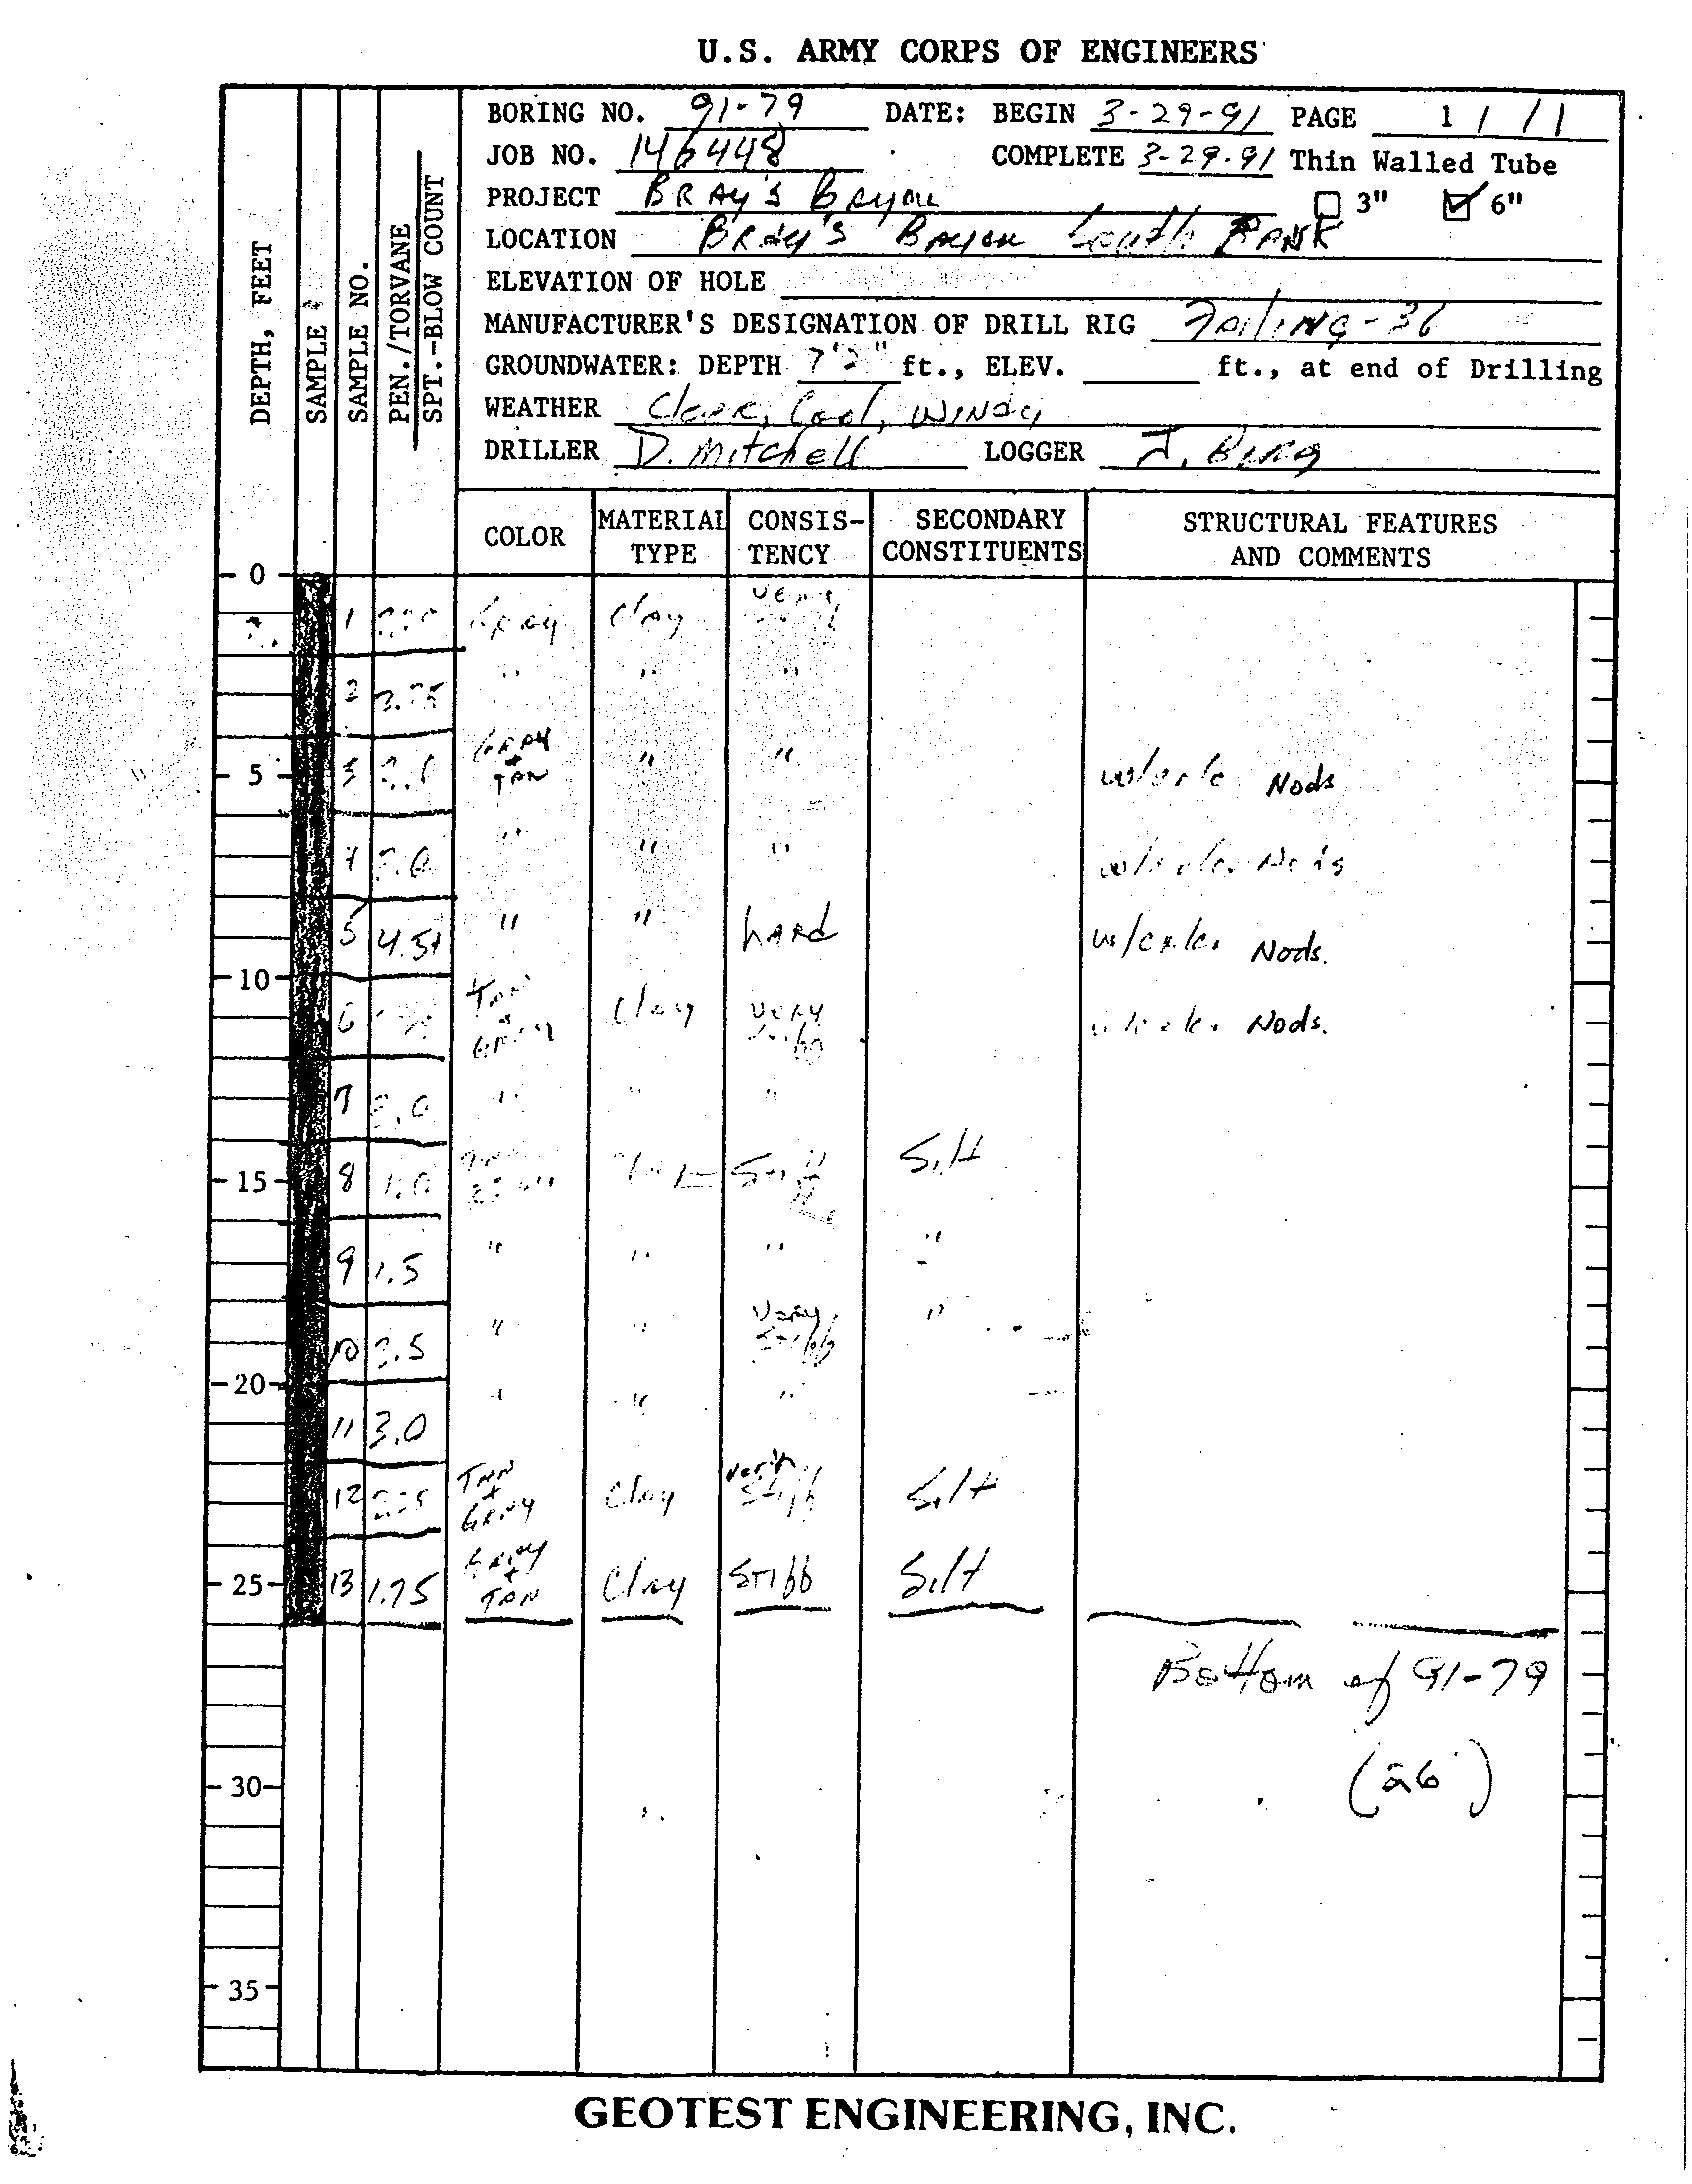 U.S. ARMY CORPS OF ENGINEERS
BORING NO. 91-79 DATE: BEGIN 3-29-91 PAGE 1 / 1
JOB NO. 146448 COMPLETE 3-29-91 Thin Walled Tube
PROJECT BRAY'S BAYOU 3" 6"
LOCATION BRAY'S BAYOU South BANK
ELEVATION OF HOLE
MANUFACTURER'S DESIGNATION OF DRILL RIG Failing-36
GROUNDWATER: DEPTH 7'2" ft., ELEV. ft., at end of Drilling
WEATHER Clear, Cool, WINDY
DRILLER D. Mitchell LOGGER J. Berg
DEPTH, FEET
SAMPLE
SAMPLE NO.
PEN./TORVANE
SPT.-BLOW COUNT
COLOR MATERIAL TYPE CONSISTENCY SECONDARY CONSTITUENTS STRUCTURAL FEATURES AND COMMENTS
0
1 Gray Clay Very
2 " " "
5 3 GRAY + TAN " " Nods
4 " " "
5 4.5+ " " hard w/calc. Nods.
10
6 TAN & GRAY Clay Very Stiff Nods.
7 " " "
15 8 1.0 Stiff Silt
9 1.5 " " " "
10 " " Very Stiff "
20
11 3.0 " " "
12 TAN + GRAY Clay Very Stiff Silt
25 13 1.75 GRAY + TAN Clay Stiff Silt
Bottom of 91-79
(26')
30
35
GEOTEST ENGINEERING, INC.